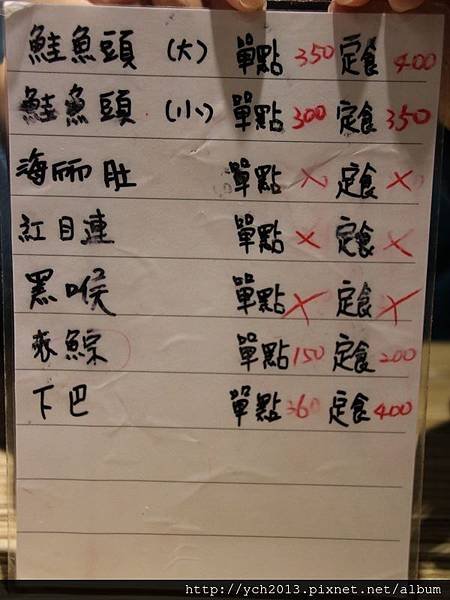 鮭魚頭 (大) 單點 350 定食 400
鮭魚頭 (小) 單點 300 定食 350
海雨肚 單點 × 定食 ×
紅目連 單點 × 定食 ×
黑喉 單點 × 定食 ×
單點 150 定食 200
下巴 單點 360 定食 400
http://ych2013.pixnet.net/album